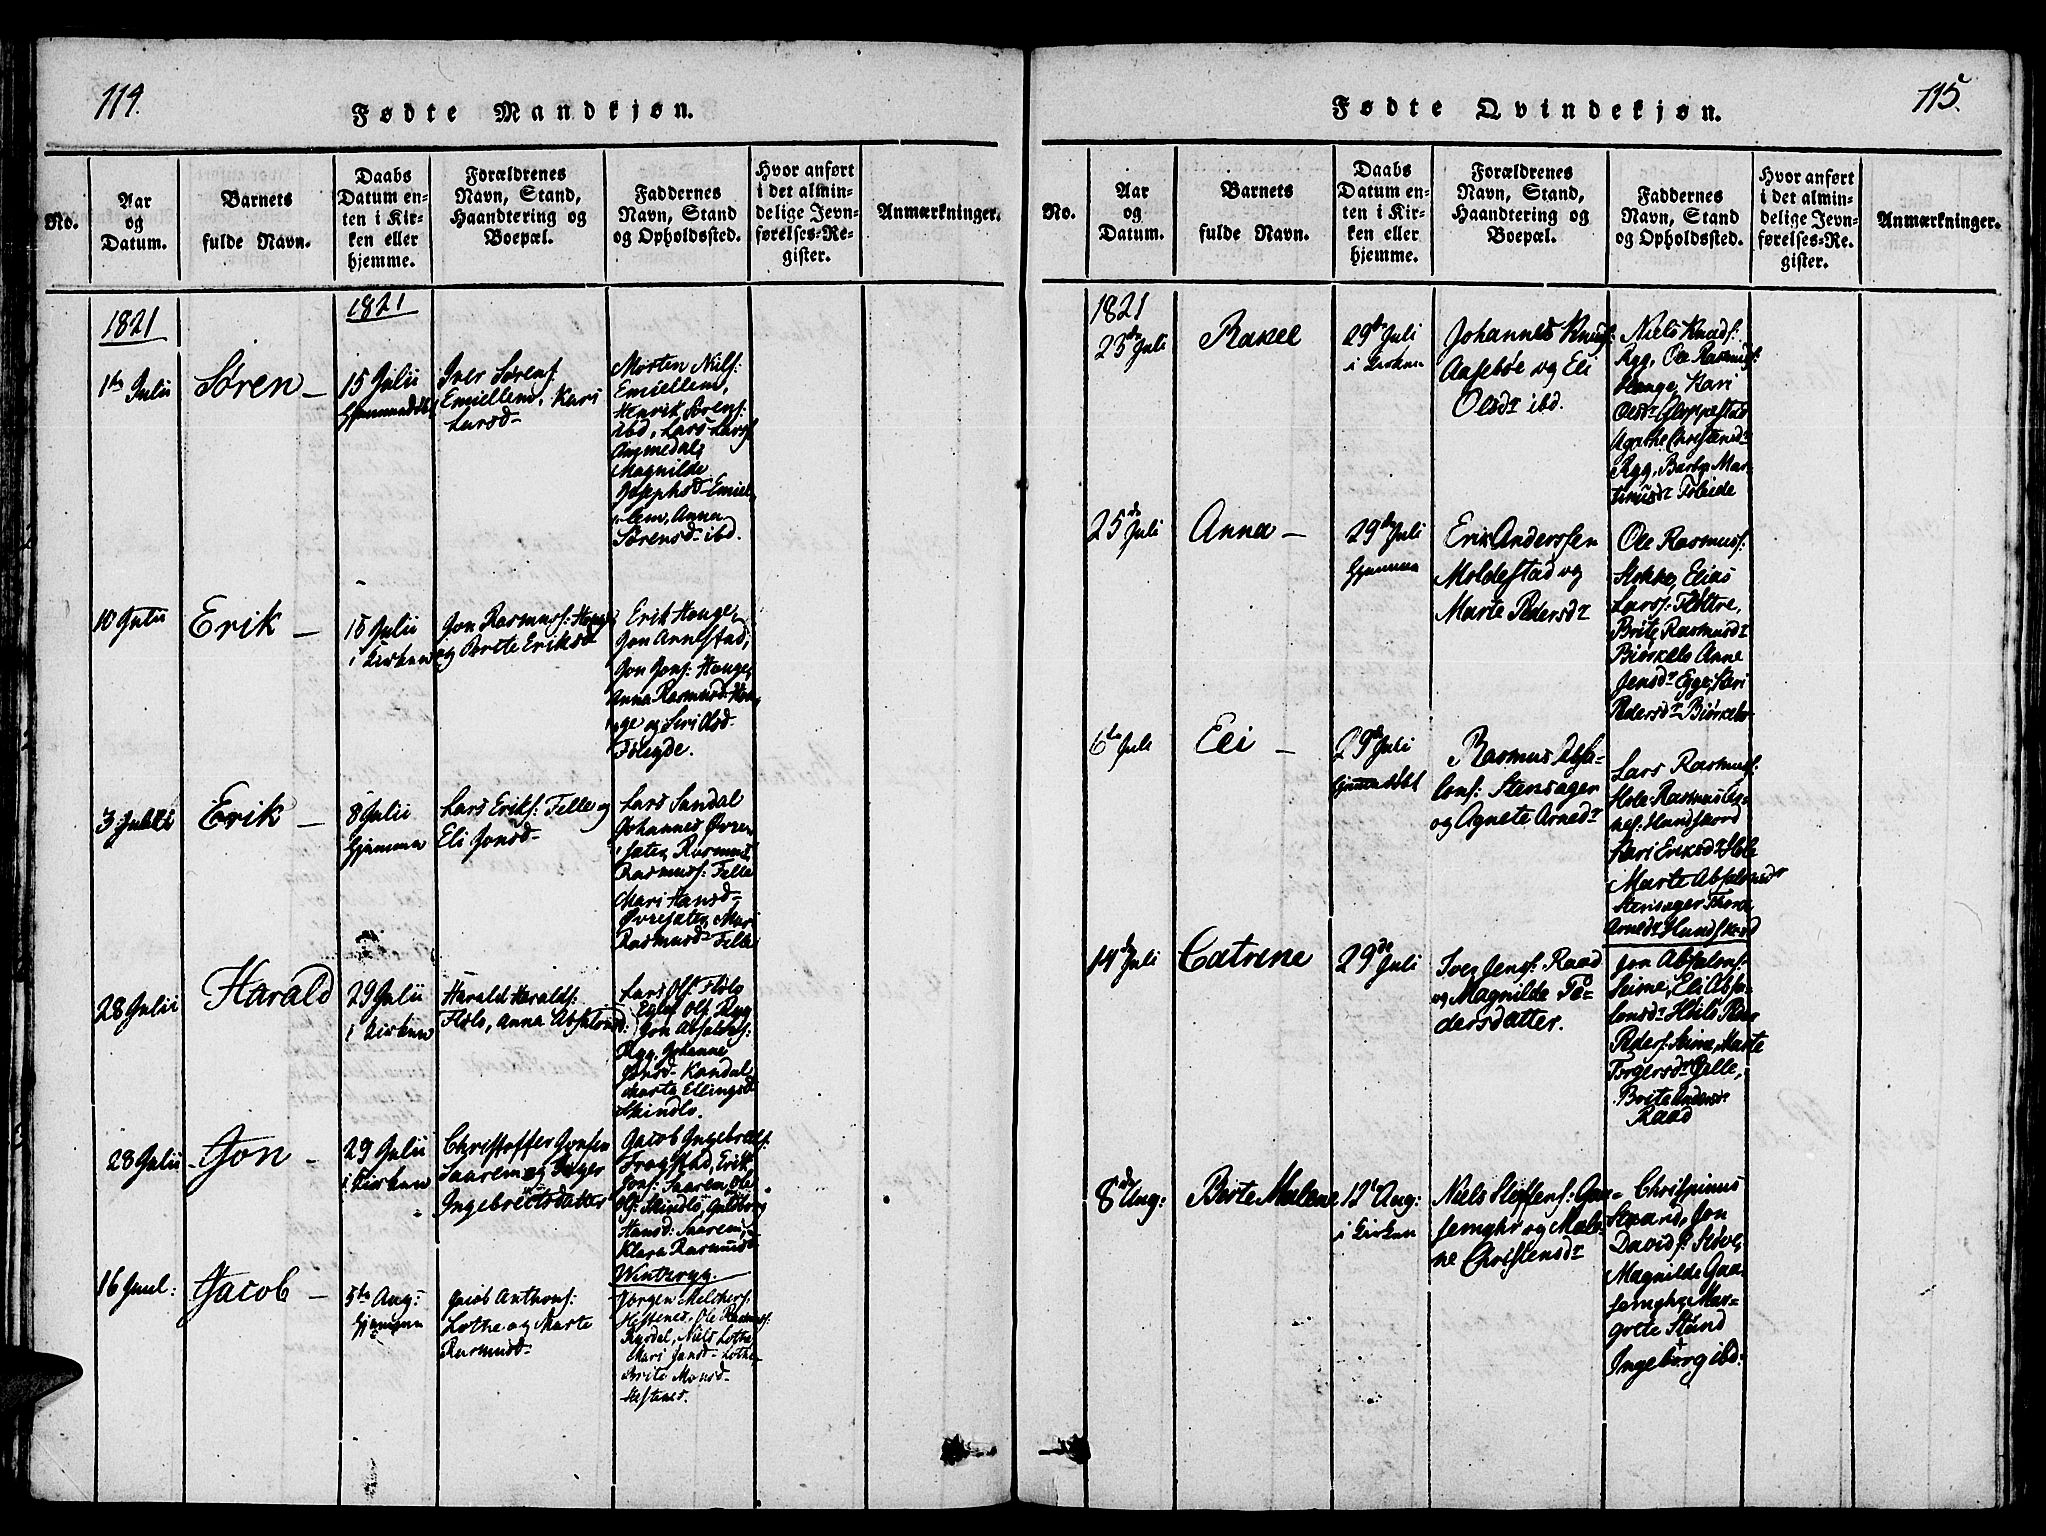 114.
Fødte Mandkjøn.
No.
Aar
og
Datum.
Barnets
fulde Navn.
Daabs
Datum en-
ten i Kir-
ken eller
hjemme.
Forældrenes
Navn, Stand,
Haandtering og
Boepæl.
Faddernes
Navn, Stand
og Opholdssted.
Hvor anført
i det almin-
delige Jevn-
førelses-Re-
gister.
Anmærkninger.
1821
1821
1ste Julii
Søren
15 Julii
Iver Sørens:
Emiellem, Kari
Larsd
Morten Nils:
Emiellem,
Henrik Sørens:
ibd, Lars Lars:
Magnilde
Josephsd Emiel-
lem, Anna
Sørensd ibd.
10 Julii
Erik
15 Julii
i Kirken
Jon Rasmuss: Hauge
og Berte Eriksd
Erik Hauge,
Jon Arnestad,
Jon Jons: Hauge,
Anna Rasmusd: Hau-
ge og Siri Olsd
3 Julii
Erik
8 Julii
hjemme
Lars Eriks: Felle og
Eli Jonsd
Lars Sandal
Johannes Øvre-
sæter, Rasmus
Rasmuss: Felle
Mari Hansd
Øvresæter, Mari
Rasmusd Felle
28 Julii
Harald
29 Julii
i Kirken
Harald Haralds:
Flølo, Anna Absalonsd:
Lars Ols: Flølo
Ols: Rygg
Jon Absalons:
Rygg, Johanne
Jonsd Kandal,
Marta Ellingsd
Skindlo.
28 Julii
Jon
29 Julii
i Kirken
Christoffer Jonsen
Saarem og Inger
Ingebretsdatter
Jacob Ingebrets:
Frogstad, Erik
Jons: Saarem, Ole
Ols: Skindlo, Guldborg
Hansd: Saarem,
Klara Rasmusd
Winteryg.
16 Juul:
Jacob
5te Aug:
hjemme
Jacob Anthons:
Lothe og Marte
Rasmusd
Jørgen Melchers:
Hestenes, Ole Rasmuss:
Ryssdal, Niels Lothe,
Mari Jansd Lothe
Brite Monsd
Hestenes.
115.
Fødte Qvindekjøn.
No.
Aar
og
Datum.
Barnets
fulde Navn.
Daabs
Datum en-
ten i Kir-
ken eller
hjemme.
Forældrenes
Navn, Stand,
Haandtering og
Boepæl.
Faddernes
Navn, Stand
og Opholdssted.
Hvor anført
i det almin-
delige Jevn-
førelses-Re-
gister.
Anmærkninger.
1821
23de Juli
Rakel
29de Juli
i Kirken
Johannes Knuds:
Aasebøe og Eli
Olsdr ibd.
Niels Knuds:
Rygg, Ole Rasmuss:
Hauge, Kari
Olsdr Gloppestad
Agathe Christensdr
Rygg, Barbr. Mar-
tinusdr Foleide
25de Juli
Anna
29de Juli
hjemme
Erik Anderssen
Moldestad og
Marte Pedersdr
Ole Rasmuss:
Stokke, Elias
Larss: Fløttre,
Brite Rasmusdr
Biørkelo, Anne
Jensdr Egge, Kari
Pedersdr Biørkelo
6te Juli
Eli
29de Juli
Rasmus Absa-
lons: Stensager
og Agnete Arnedr
Lars Rasmuss:
Hole, Rasmus Ag-
nes: Hundskord
Kari Eriksdr Hole
Marte Absalonsdr
Stensager, Thora
Arnedr Hundskord
14de Juli
Catrine
29de Juli
Iver Jens: Raad
og Magnilde Pe-
dersdatter.
Jon Absalons:
Seime, Eli Absa-
lonsdr Hoilo, Peder
Peders: Seime, Marte
Torgersdr Gjelle,
Brite Andersdr
Raad
8de Aug:
Berte Malene
12te Aug:
i Kirken
Niels Steffens: Gaa-
semyhr og Male-
ne Christensdr
Chrispinus
Staand, Jon
Davids: Støve,
Magnilde Gaa-
semyhr, Mar-
grete Staand
Ingeborg ibd: